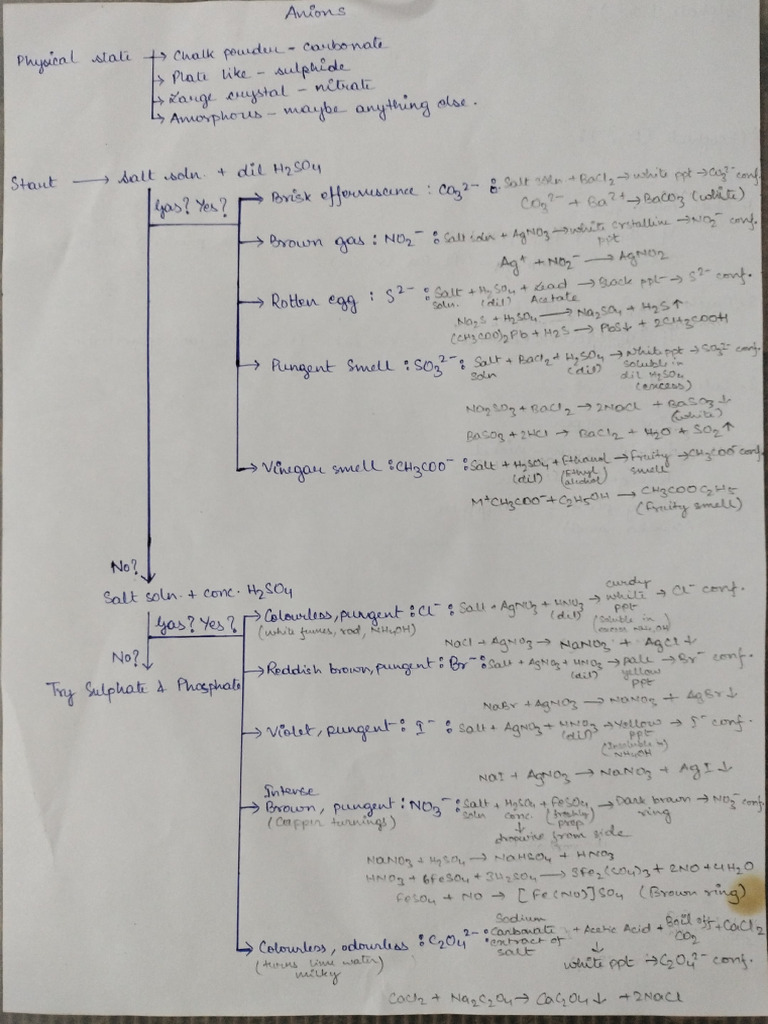 Anions
Physical state → Chalk powder - carbonate
→ Plate like - sulphide
→ Large crystal - nitrate
→ Amorphous - maybe anything else.
Start → Salt soln. + dil H2SO4
Gas? Yes?
→ Brisk effervescence : CO3²⁻ : Salt soln + BaCl2 → white ppt → CO3²⁻ conf.
CO3²⁻ + Ba²⁺ → BaCO3 (white)
→ Brown gas : NO2⁻ : Salt soln + AgNO3 → white crystalline ppt → NO2⁻ conf.
Ag⁺ + NO2⁻ → AgNO2
→ Rotten egg : S²⁻ : Salt soln. + H2SO4 (dil) + Lead Acetate → Black ppt → S²⁻ conf.
Na2S + H2SO4 → Na2SO4 + H2S↑
(CH3COO)2Pb + H2S → PbS↓ + 2CH3COOH
→ Pungent smell : SO3²⁻ : Salt soln + BaCl2 + H2SO4 (dil) → White ppt soluble in dil H2SO4 (excess) → SO3²⁻ conf.
Na2SO3 + BaCl2 → 2NaCl + BaSO3↓ (white)
BaSO3 + 2HCl → BaCl2 + H2O + SO2↑
→ Vinegar smell : CH3COO⁻ : Salt + H2SO4 (dil) + Ethanol (Ethyl alcohol) → Fruity smell → CH3COO⁻ conf.
M⁺CH3COO⁻ + C2H5OH → CH3COOC2H5 (fruity smell)
No?
Salt soln. + conc. H2SO4
Gas? Yes?
→ Colourless, pungent : Cl⁻ : Salt + AgNO3 + HNO3 (dil) → curdy white ppt (soluble in excess NH4OH) → Cl⁻ conf.
(white fumes, rod, NH4OH)
NaCl + AgNO3 → NaNO3 + AgCl↓
No?
Try Sulphate & Phosphate
→ Reddish brown, pungent : Br⁻ : Salt + AgNO3 + HNO3 (dil) → pale yellow ppt → Br⁻ conf.
NaBr + AgNO3 → NaNO3 + AgBr↓
→ Violet, pungent : I⁻ : Salt + AgNO3 + HNO3 (dil) → Yellow ppt (Insoluble in NH4OH) → I⁻ conf.
NaI + AgNO3 → NaNO3 + AgI↓
→ Intense Brown, pungent : NO3⁻ : Salt soln + H2SO4 conc. + FeSO4 (freshly prep) → Dark brown ring → NO3⁻ conf.
(Copper turnings)
from side
NaNO3 + H2SO4 → NaHSO4 + HNO3
HNO3 + 6FeSO4 + 3H2SO4 → 3Fe2(SO4)3 + 2NO + 4H2O
FeSO4 + NO → [Fe(NO)]SO4 (Brown ring)
→ Colourless, odourless : C2O4²⁻ : Sodium Carbonate extract of salt + Acetic Acid + Boil off CO2 + CaCl2
(turns lime water milky)
↓
white ppt → C2O4²⁻ conf.
CaCl2 + Na2C2O4 → CaC2O4↓ + 2NaCl